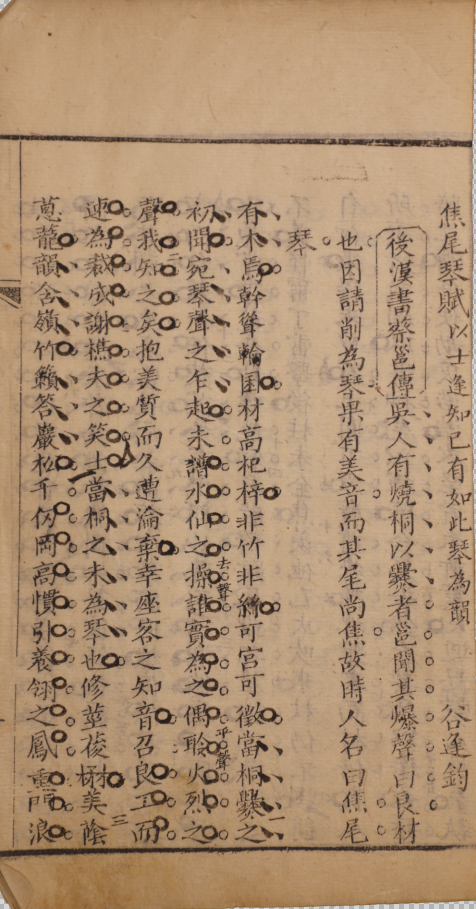 焦尾琴賦以士逢知已有如此琴為韻　谷逢鈞
後漢書蔡邕傳吳人有燒桐以爨者邕聞其爆聲曰良材
也因請削為琴果有美音而其尾尚焦故時人名曰焦尾
琴
有木焉幹聳輪囷材高杞梓非竹非絲可宮可徵當桐爨之
初聞宛琴聲之乍起未譜水仙之操去聲誰實為之偶聆火烈之平聲
聲我知之矣抱美質而久遭淪棄幸座客之知音召良工而
速為裁成謝樵夫之笑士當桐之未為琴也修莖夌樾美蔭
蔥蘢韻含嶺竹籟答巖松千仭岡高慣引養翎之鳳重門浪
一
二
三